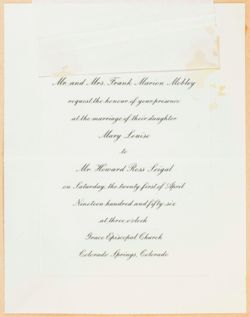 Mr. and Mrs. Frank Marion Mobley
request the honour of your presence
at the marriage of their daughter
Mary Louise
to
Mr. Howard Ross Seigal
on Saturday, the twenty first of April
Nineteen hundred and fifty six
at three o'clock
Grace Episcopal Church
Colorado Springs, Colorado